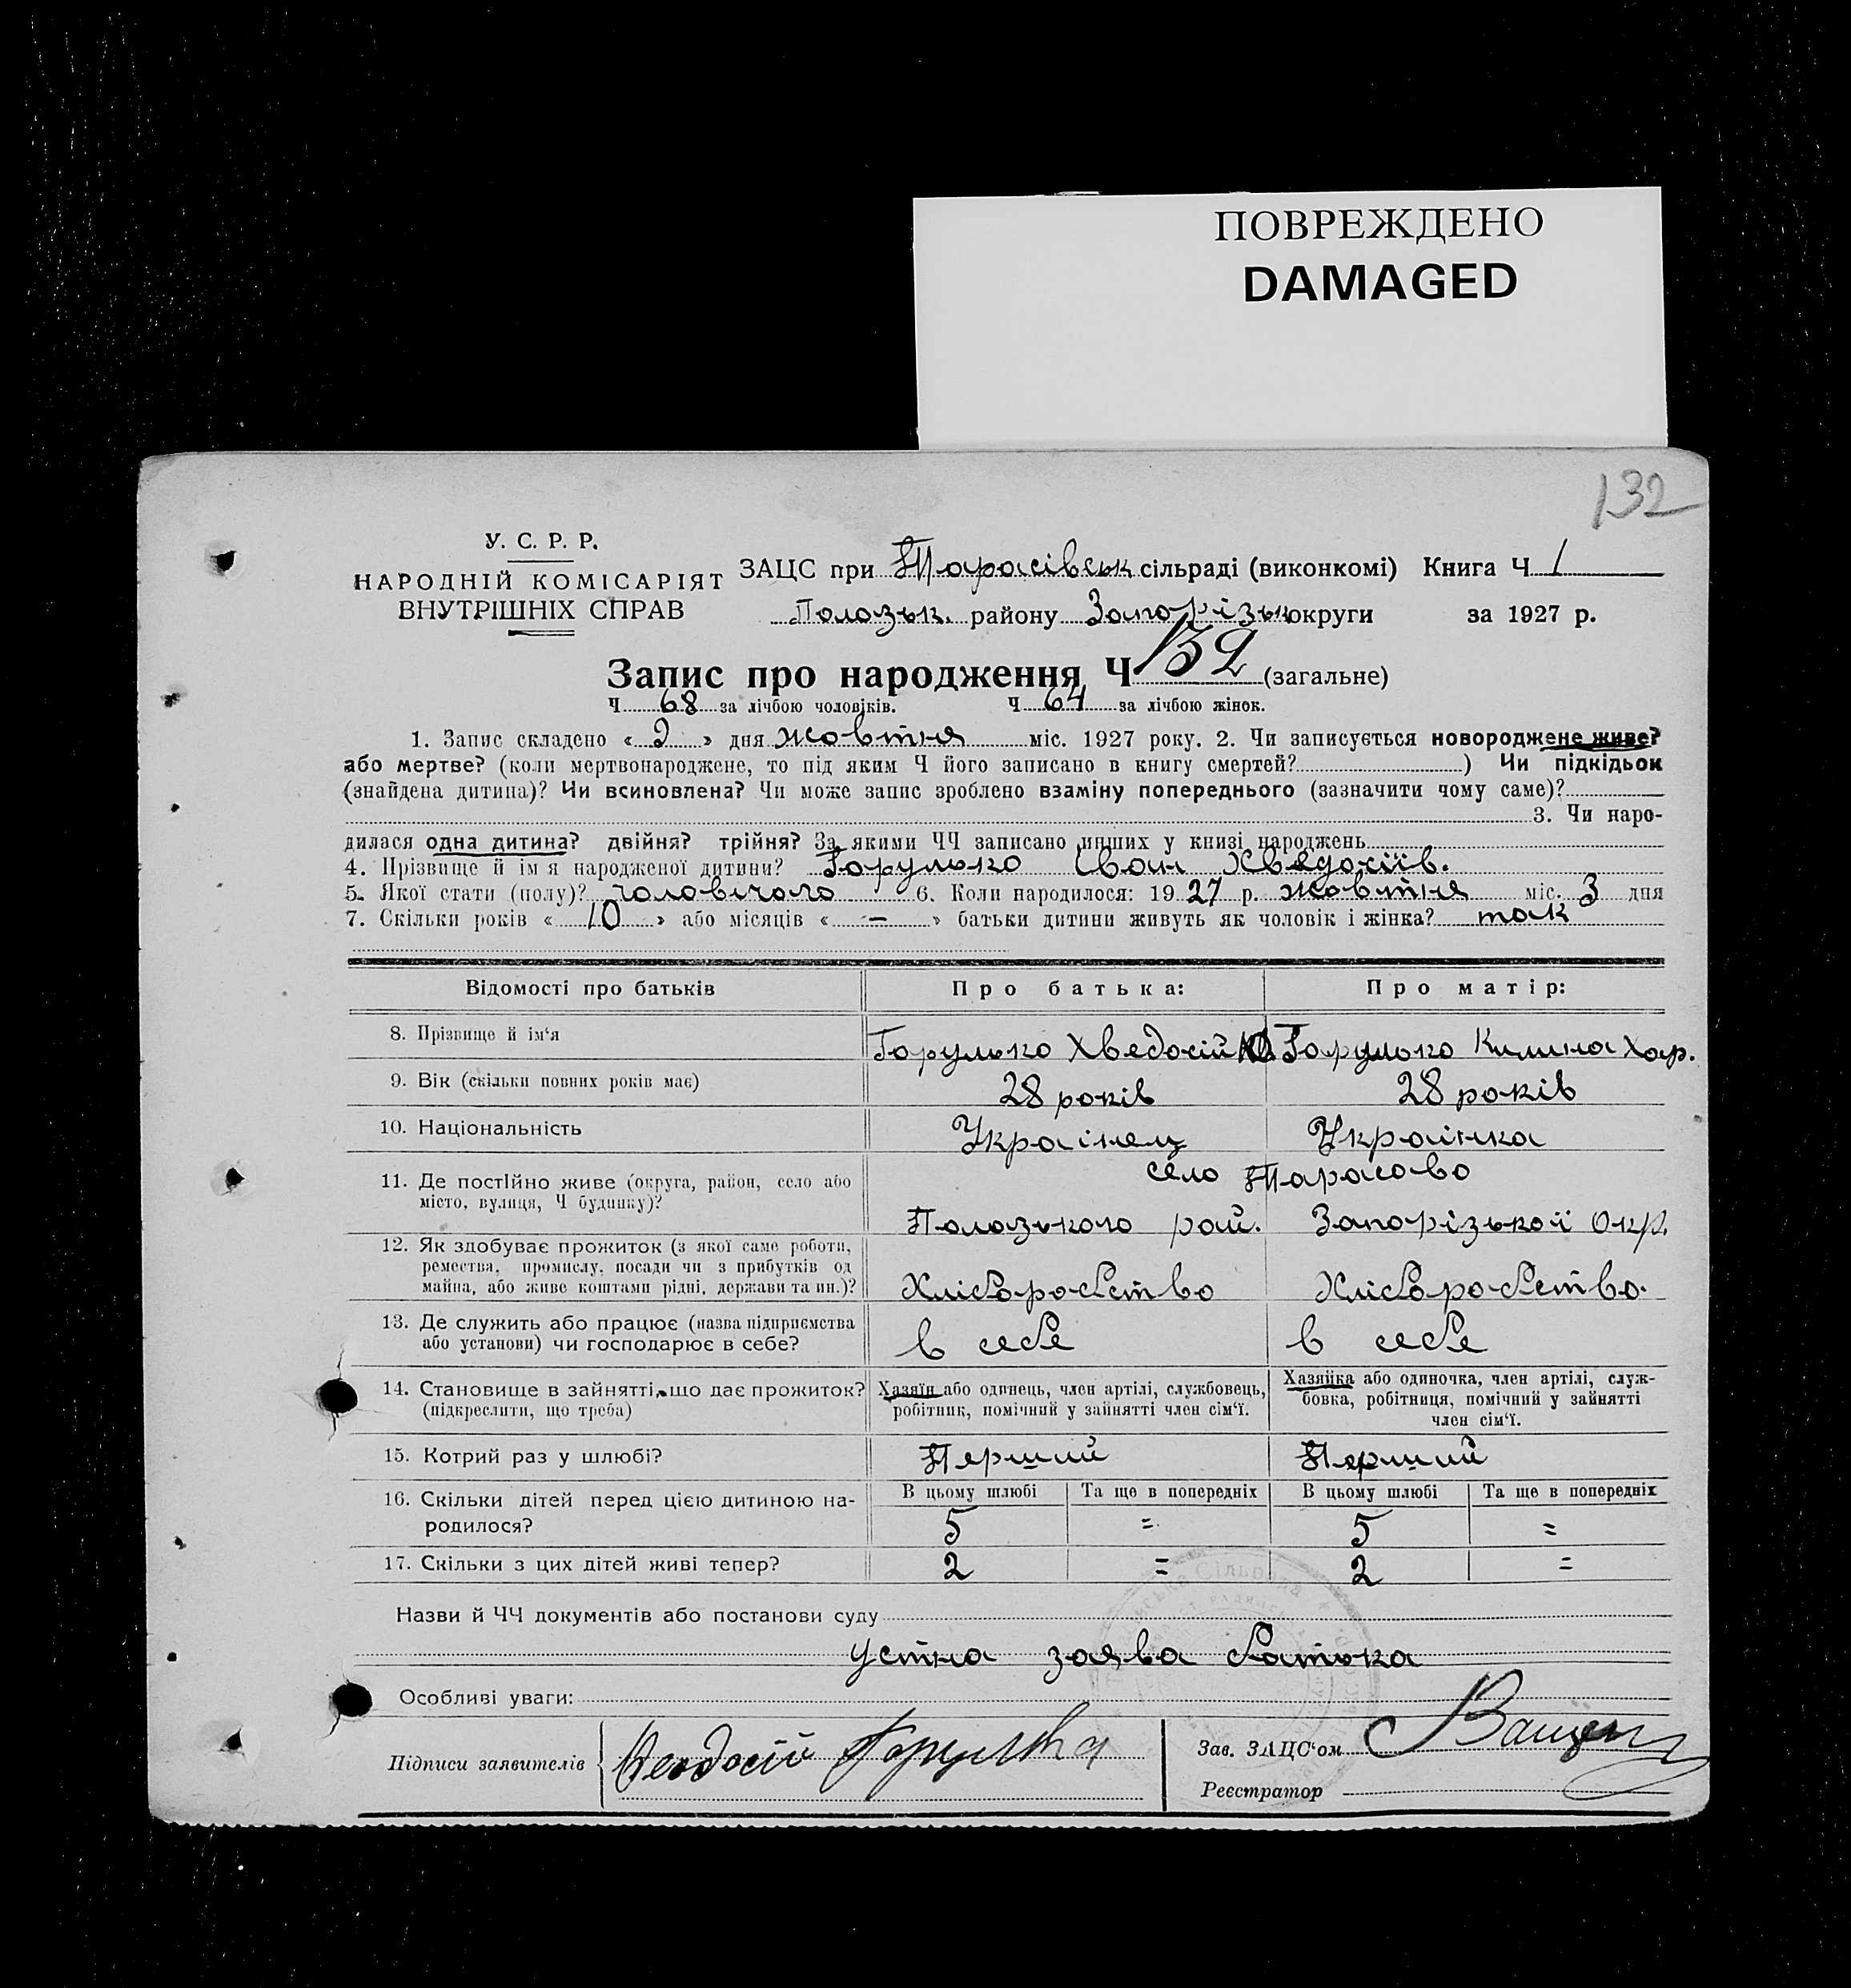 ПОВРЕЖДЕНО
DAMAGED
132
У. С. Р. Р.
НАРОДНІЙ КОМІСАРІЯТ
ВНУТРІШНІХ СПРАВ
ЗАЦС при Тарасівськ сільраді (виконкомі) Книга Ч 1
Полозьк. району Запорізьк округи за 1927 р.
Запис про народження Ч 132 (загальне)
Ч 68 за лічбою чоловіків. Ч 64 за лічбою жінок.
1. Запис складено « 2 » дня жовтня міс. 1927 року. 2. Чи записується новороджене живе?
або мертве? (коли мертвонароджене, то під яким Ч його записано в книгу смертей? ) Чи підкідьок
(знайдена дитина)? Чи всиновлена? Чи може запис зроблено взаміну попереднього (зазначити чому саме)?
3. Чи наро-
дилася одна дитина? двійня? трійня? За якими ЧЧ записано инших у книзі народжень
4. Прізвище й ім'я народженої дитини? Горулько Іван Хведосіїв.
5. Якої стати (полу)? чоловічого 6. Коли народилося: 1927 р. жовтня міс. 3 дня
7. Скільки років « 10 » або місяців « – » батьки дитини живуть як чоловік і жінка? так
Відомості про батьків Про батька: Про матір:
8. Прізвище й ім'я Горулько Хведосій Горулько Килина Хар.
9. Вік (скільки повних років має) 28 років 28 років
10. Національність Українец Українка
11. Де постійно живе (округа, район, село або місто, вулиця, Ч будинку)? село Тарасово
Полозького рай. Запорізької Окр.
12. Як здобуває прожиток (з якої саме роботи,
ремества, промислу, посади чи з прибутків од
майна, або живе коштами рідні, держави та ин.)? Хліборобство Хліборобство.
13. Де служить або працює (назва підприємства
або установи) чи господарює в себе? в себе в себе
14. Становище в зайнятті, що дає прожиток?
(підкреслити, що треба)
Хазяїн або одинець, член артілі, службовець,
робітник, помічний у зайнятті член сім'ї.
Хазяйка або одиночка, член артілі, служ-
бовка, робітниця, помічний у зайнятті
член сім'ї.
15. Котрий раз у шлюбі? Перший Перший
16. Скільки дітей перед цією дитиною на-
родилося?
В цьому шлюбі Та ще в попередніх В цьому шлюбі Та ще в попередніх
5 = 5 =
17. Скільки з цих дітей живі тепер? 2 = 2 =
Назви й ЧЧ документів або постанови суду
устна заява батька
Особливі уваги:
Підписи заявителів Феодосій Горулька
Зав. ЗАЦС'ом
Реєстратор